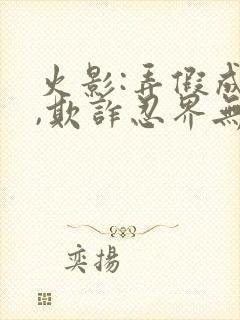 火影:弄假成
,欺詐忍界無
奕揚